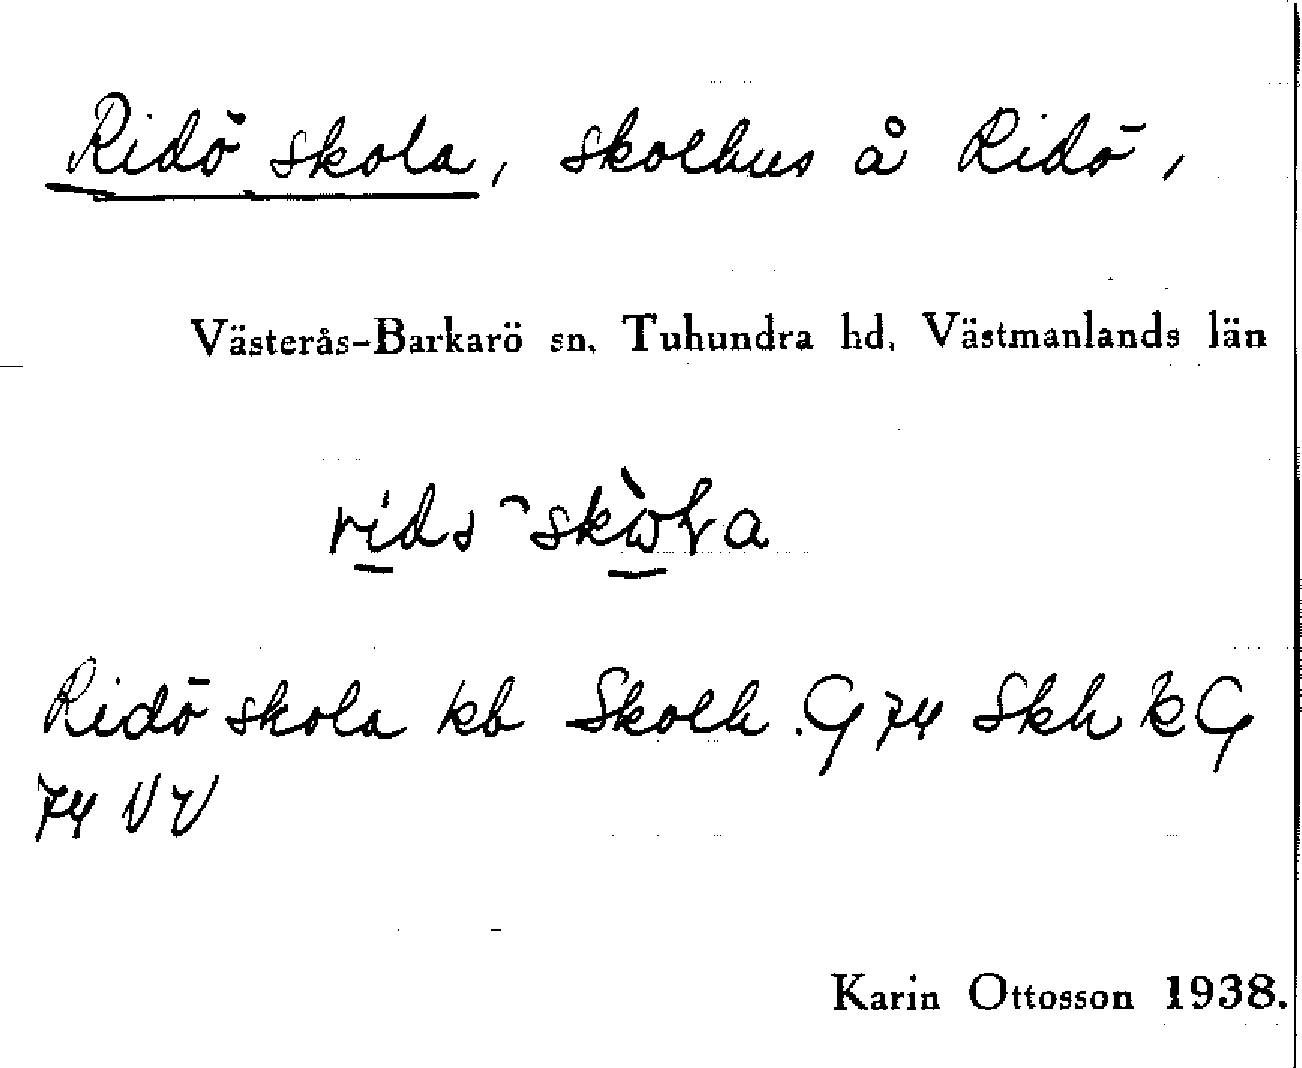 Ridö skola, skolhus å Ridö,
Västerås-Barkarö sn. Tuhundra hd. Västmanlands län
Ridö skola kb Skolh. G 74 Skh k G
74 VV
Karin Ottosson 1938.